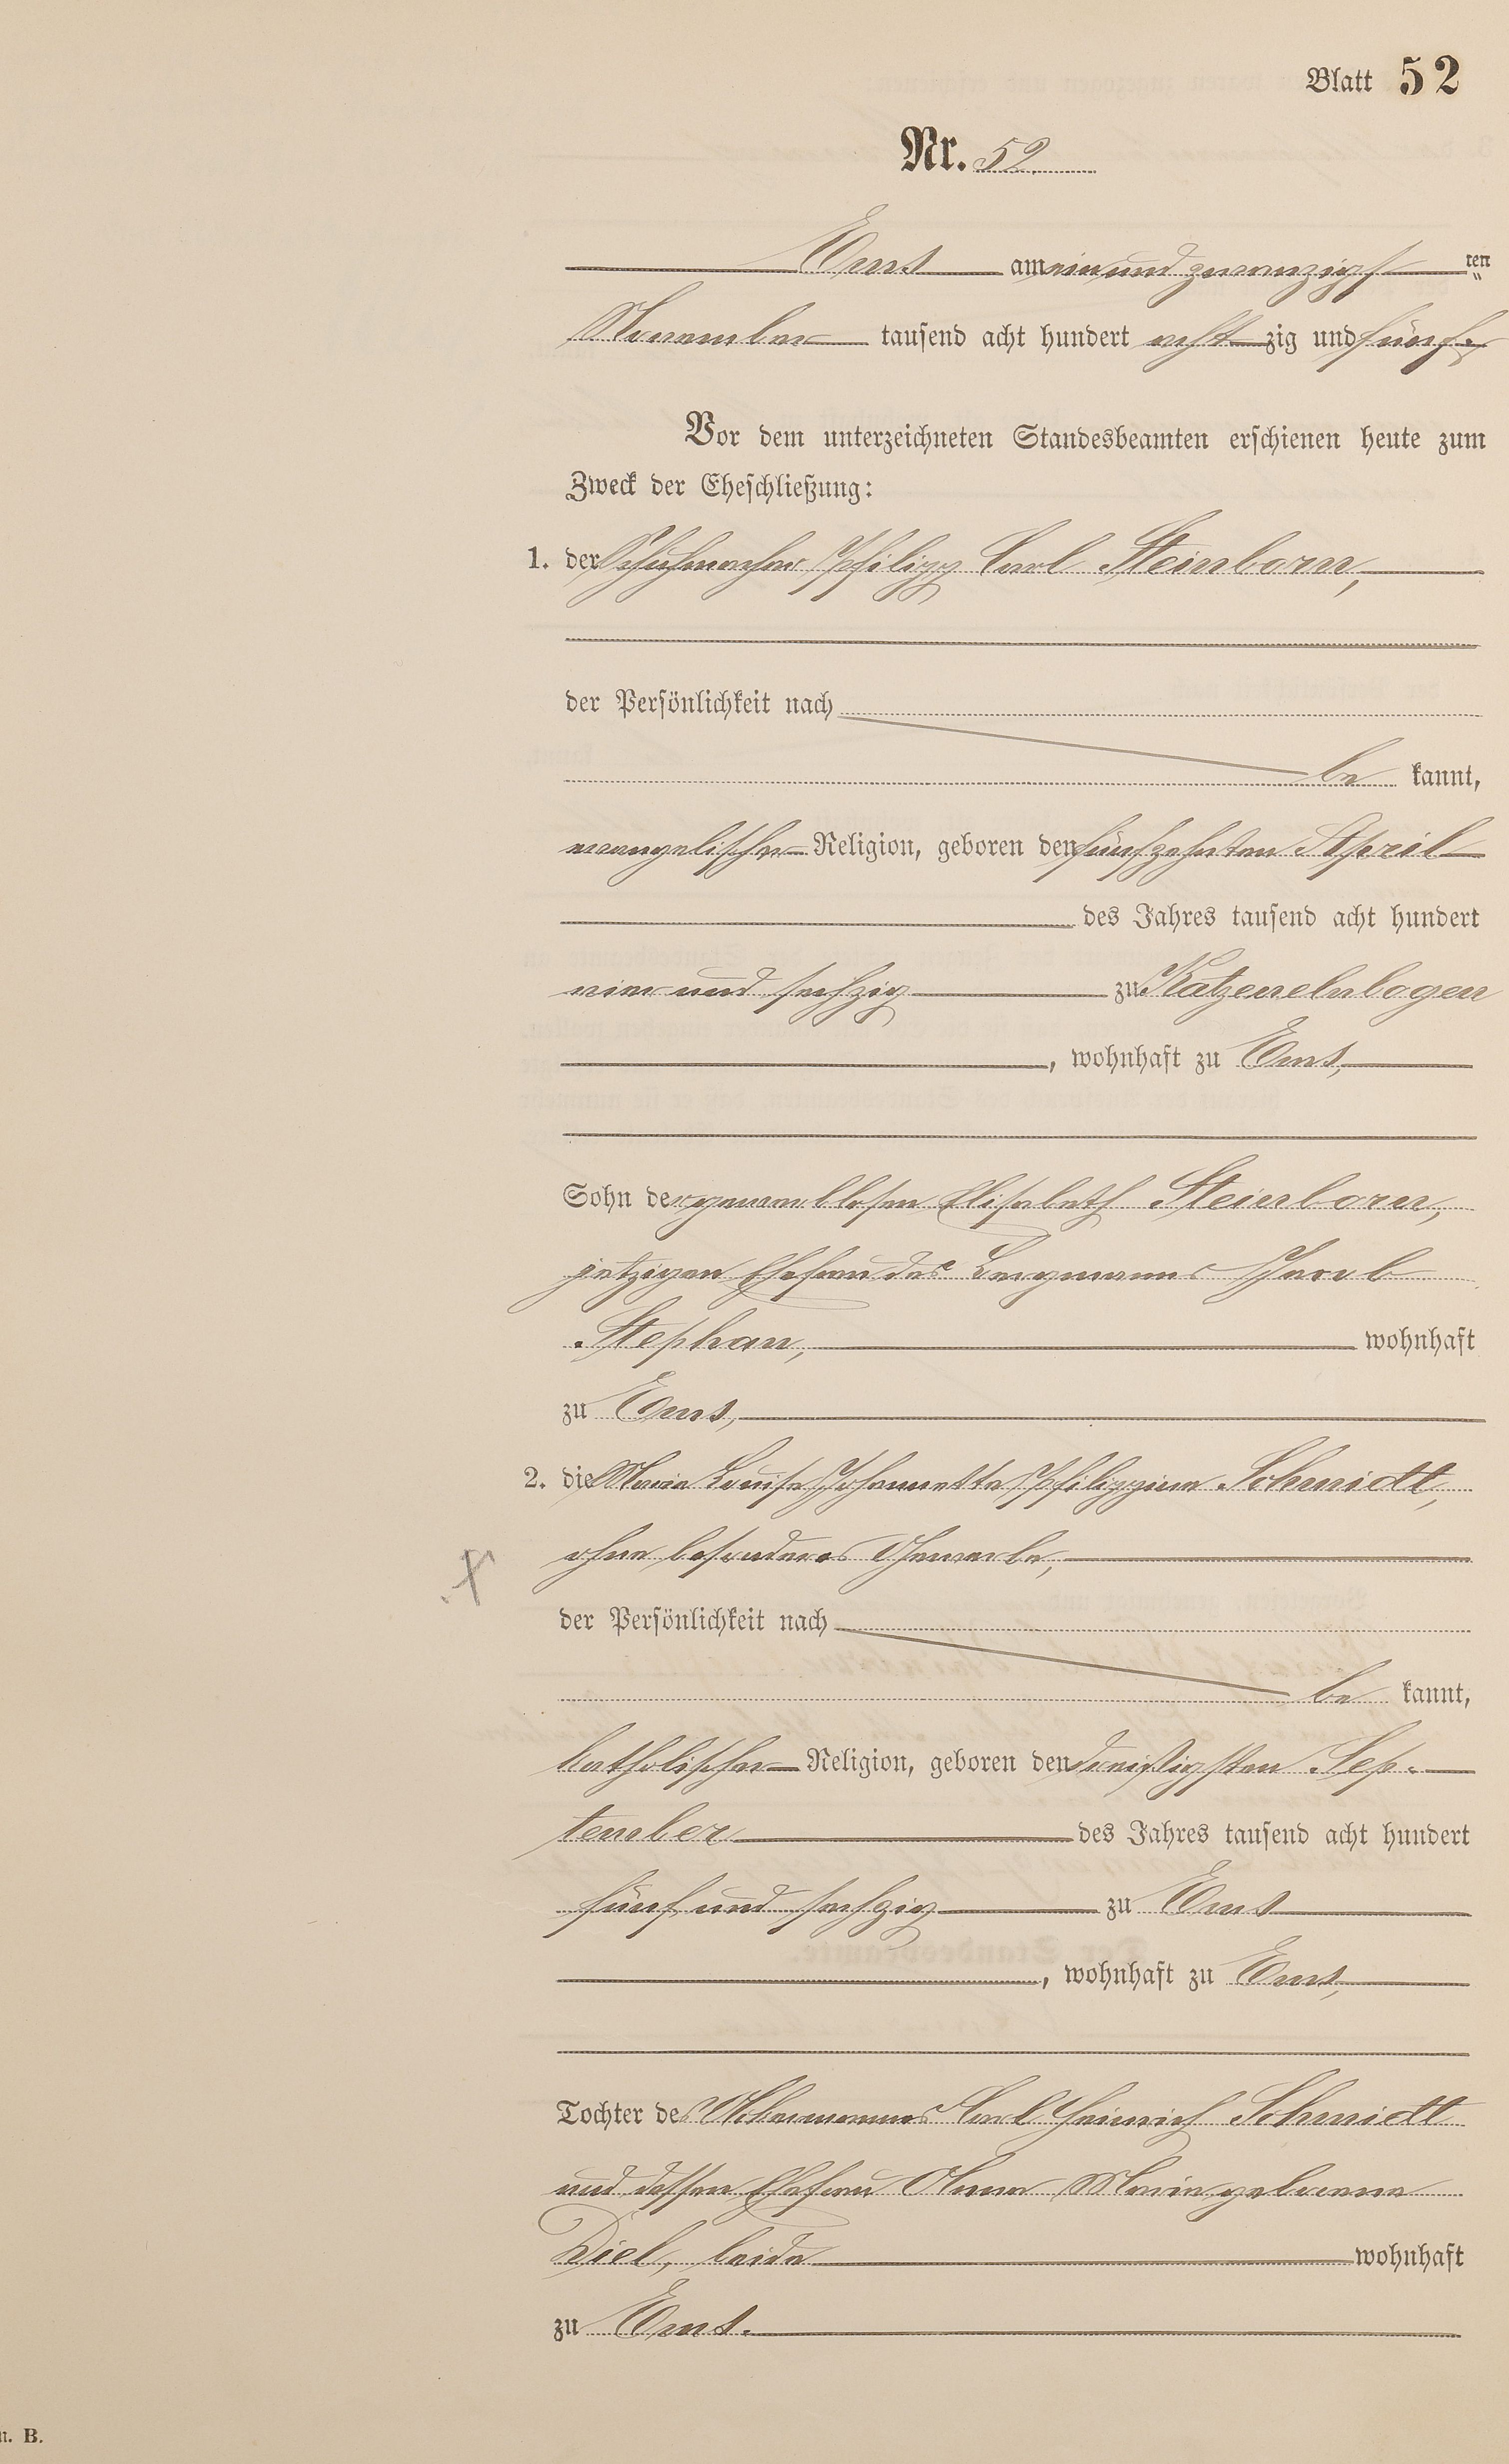 Blatt 52
Nr. 52.
Ems am ein und zwanzigst ten
November tausend acht hundert acht zig und fünf.
Vor dem unterzeichneten Standesbeamten erschienen heute zum
Zweck der Eheschließung:
1. der Schuhmacher Philipp Carl Steinborn,
der Persönlichkeit nach
be kannt,
evangelischer Religion, geboren den fünfzehnten April
des Jahres tausend acht hundert
vier und sechzig zu Katzenelnbogen
, wohnhaft zu Ems,
Sohn der gewerblosen Elisabeth Steinborn,
jetzigen Ehefrau des Bergmanns Jacob
Stephan, wohnhaft
zu Ems,
2. die Marie Louise Johannette Philippine Schmidt,
ohne besonderes Gewerbe,
der Persönlichkeit nach
be kannt,
katholischer Religion, geboren den dreißigsten Sep-
tember des Jahres tausend acht hundert
fünf und sechzig zu Ems
, wohnhaft zu Ems,
Tochter des Ackermanns Carl Heinrich Schmidt
und dessen Ehefrau Anna Maria geborene
Diel, beide wohnhaft
zu Ems.
B.